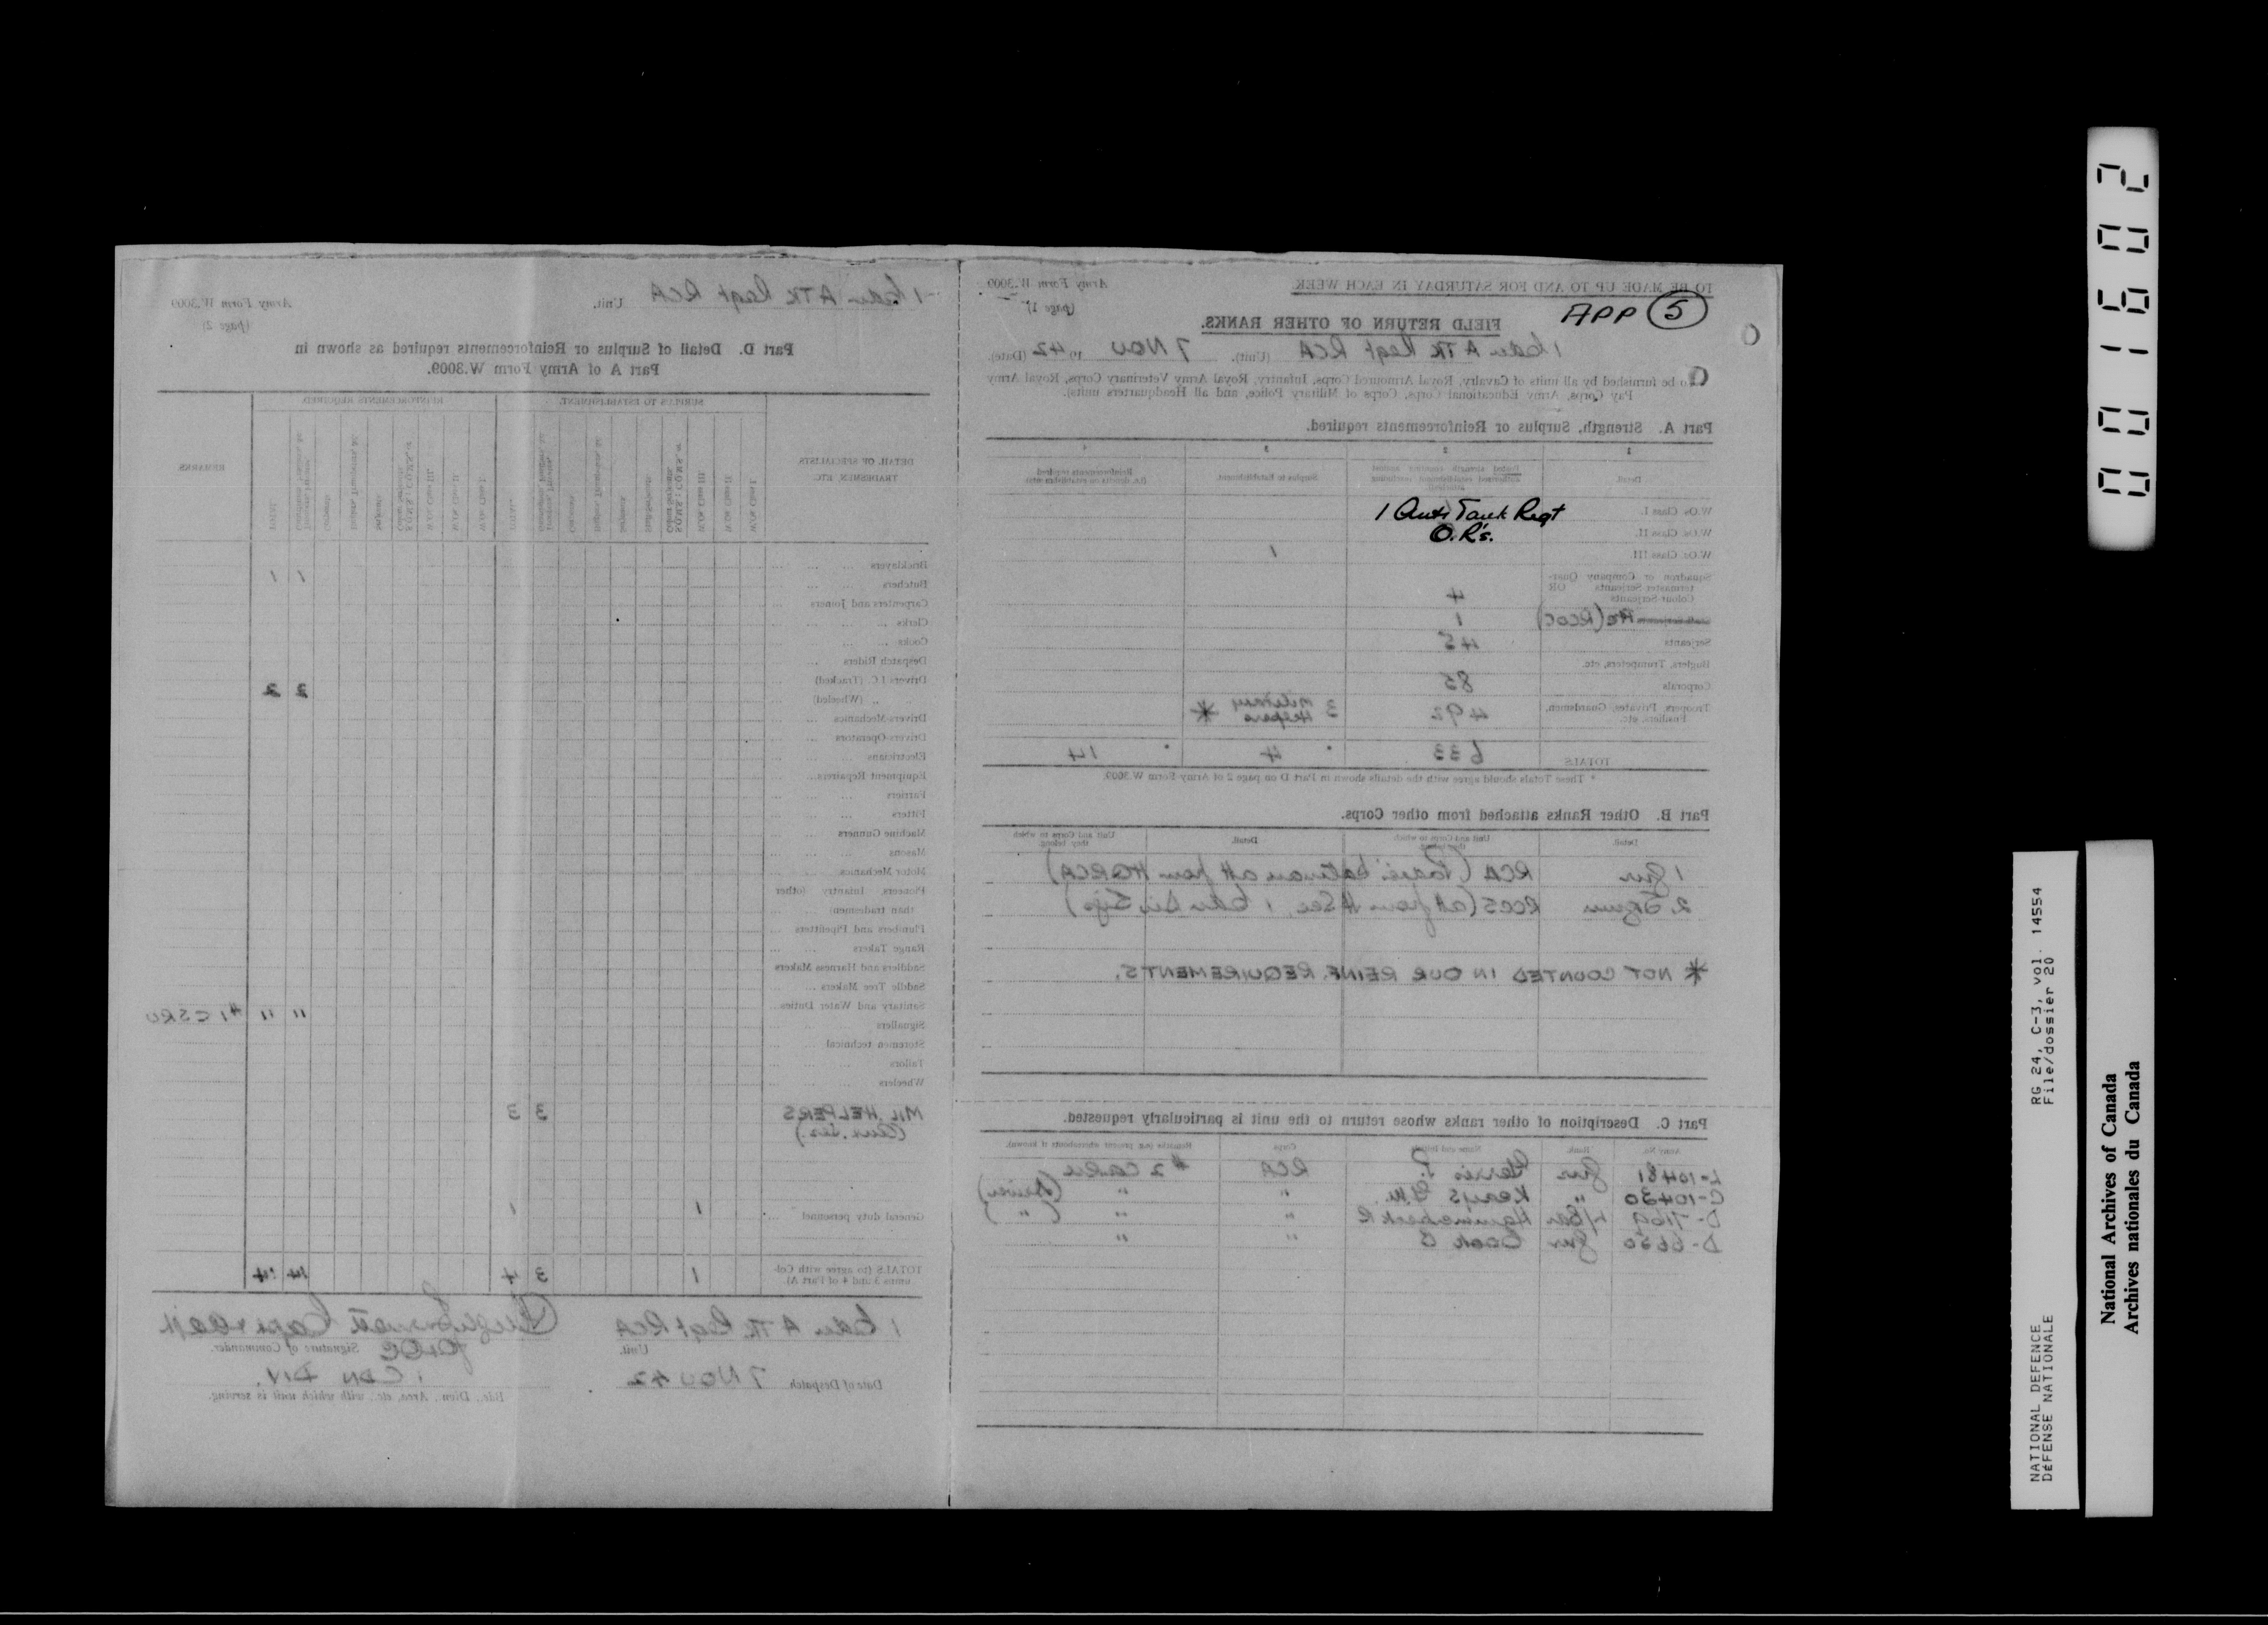 TO BE MADE UP TO AND FOR SATURDAY IN EACH WEEK.
Army Form W.3009
(page 1)
APP 5
FIELD RETURN OF OTHER RANKS.
1 Cdn A Tk Regt RCA (Unit). 7 NOV 1942 (Date).
To be furnished by all units of Cavalry, Royal Armoured Corps, Infantry, Royal Army Veterinary Corps, Royal Army
Pay Corps, Army Educational Corps, Corps of Military Police, and all Headquarters units).
Part A. Strength, Surplus or Reinforcements required.
1 2 3 4
Detail Surplus to Establishment Reinforcements required
W.Os. Class I.
1 Anti Tank Regt
O.R's.
W.Os. Class II.
W.Os. Class III. 1
Squadron or Company Quar-
termaster Serjeants OR
Colour-Serjeants 4
(RCOC) 1
Serjeants 45
Buglers, Trumpeters, etc.
Corporals 85
Troopers, Privates, Guardsmen,
Fusiliers, etc. 492 3 Military Helpers *
TOTALS 633 * 4 * 14
* These Totals should agree with the details shown in Part D on page 2 of Army Form W.3009.
Part B. Other Ranks attached from other Corps.
Detail. Unit and Corps to which they belong. Detail. Unit and Corps to which they belong.
1 Gnr RCA (batman att from HQRCA)
2 Sigmn RCCS (att from Sec, 1 Cdn Div Sigs)
* NOT COUNTED IN OUR REINF. REQUIREMENTS.
Part C. Description of other ranks whose return to the unit is particularly requested.
Army No. Rank. Name and Initials Corps Remarks (e.g. present whereabouts if known).
L-10481 Gnr P. RCA #2 CARU
C-10430 " Keays " " (Driver)
D-7169 L/Bdr " " ( " )
D-6650 Gnr Cook " "
1 Cdn A Tk Regt RCA Unit.
Army Form W.3009
(page 2)
Part D. Detail of Surplus or Reinforcements required as shown in
Part A of Army Form W.3009.
DETAIL OF SPECIALISTS
TRADESMEN, ETC.
SURPLUS TO ESTABLISHMENT.
REINFORCEMENTS REQUIRED.
REMARKS
Bricklayers
Butchers 1 1
Carpenters and Joiners
Clerks
Cooks
Despatch Riders
Drivers I.C. (Tracked)
" " (Wheeled) 2 2
Drivers-Mechanics
Drivers-Operators
Electricians
Equipment Repairers
Farriers
Fitters
Machine Gunners
Masons
Motor Mechanics
Pioneers, Infantry (other
than tradesmen)
Plumbers and Pipefitters
Range Takers
Saddlers and Harness Makers
Saddle Tree Makers
Sanitary and Water Duties
Signallers 11 11 #1 CSRU
Storemen technical
Tailors
Wheelers
MIL. HELPERS 3 3
(Aux. Ser.)
General duty personnel 1 1
TOTALS (to agree with Col-
umns 3 and 4 of Part A). 1 3 4 14 14
1 Cdn A Tk Regt RCA
Unit.
Signature of Commander.
Date of Despatch 7 NOV 42
1 CDN DIV.
Bde., Divn., Area, etc., with which unit is serving.
001602
RG 24, C-3, vol. 14554
File/dossier 20
NATIONAL DEFENCE
DÉFENSE NATIONALE
National Archives of Canada
Archives nationales du Canada